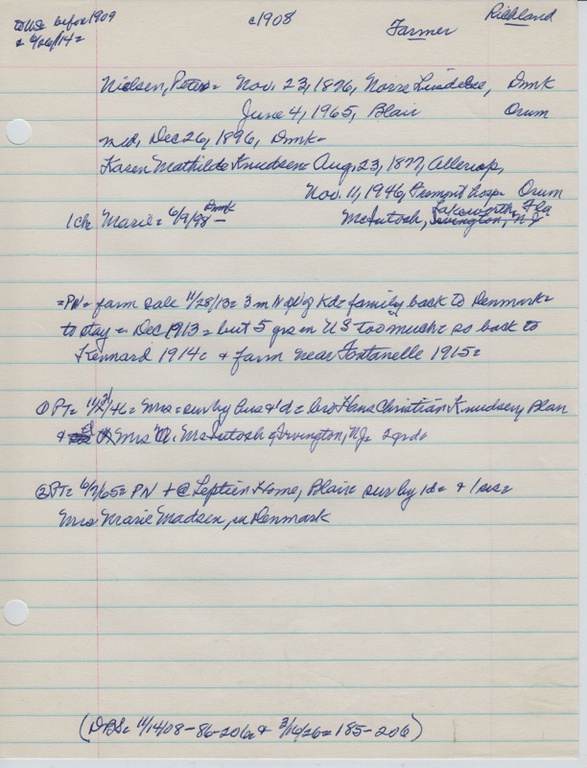 to US= before 1909
& 4/26/14=
c1908
Farmer
Richland
Nielsen, Peter= Nov. 23, 1876, Norre Lindelse, Dmk
June 4, 1965, Blair Orum
md, Dec 26, 1896, Dmk=
Karen Mathilde Knudsen= Aug. 23, 1877, Allerup,
Nov. 11, 1946, Orum
1 ch Marie= 6/9/98 Dmk McIntosh, Lakeworth, Fla
Irvington, NJ
=PN= farm sale 11/28/13= 3 m N of Kd= family back to Denmark=
to stay= Dec 1913= but 5 yrs in US too much= so back to
Kennard 1914= & farm near Fontanelle 1915=
① PT= 11/21/46= Mrs= sur by hus & 1 d= bro Hans Christian Knudsen, Blair
& Mrs McIntosh of Irvington, NJ=
② PT= 6/7/65= PN + @ Leptien Home, Blair= sur by 1 d= & 1 sis=
Mrs Marie Madsen, in Denmark
(DBS= 11/14/08-86-206= & 3/16/26=185-206)